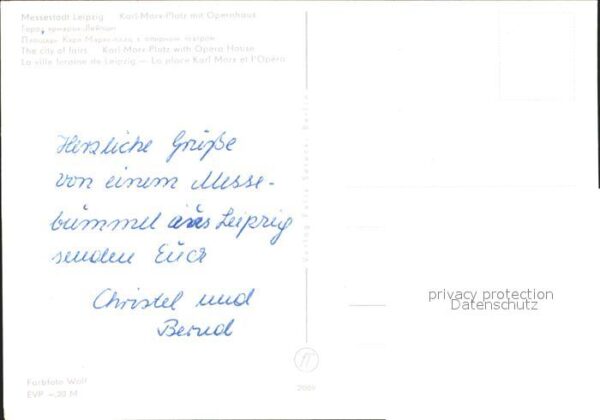 Messestadt Leipzig Karl-Marx-Platz mit Opernhaus
Город ярмарок Лейпциг
Площадь Карл Маркс-плац с оперным театром
The city of fairs. Karl-Marx-Platz with Opera House
La ville foraine de Leipzig — La place Karl Marx et l'Opéra
Herzliche Grüße
von einem Messe-
bummel aus Leipzig
senden Euch
Christel und
Bernd
Verlag Felix Setecki, Berlin
privacy protection
Datenschutz
2069
Farbfoto Wolf
EVP –,20 M